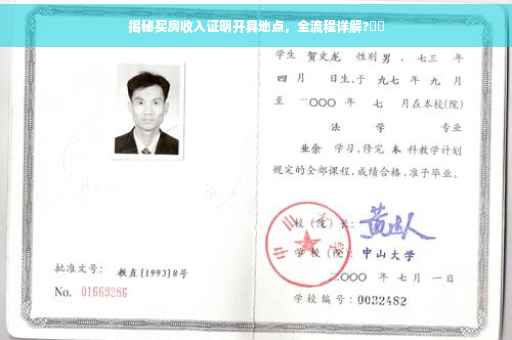 揭秘买房收入证明开具地点，全流程详解?
学生 贺文龙 性别 男 、七三 年
四 月 日生,于 九七 年 九 月
至 二〇〇〇 年 七 月在本校(院)
法 学 专业
业余 学习,修完 本 科教学计划
规定的全部课程,成绩合格,准予毕业。
校(院)长:
学校(院): 中山大学
二〇〇〇 年 七 月 一 日
批准文号: 教直[1993]8号
No. 01663286
学校编号: 0032482